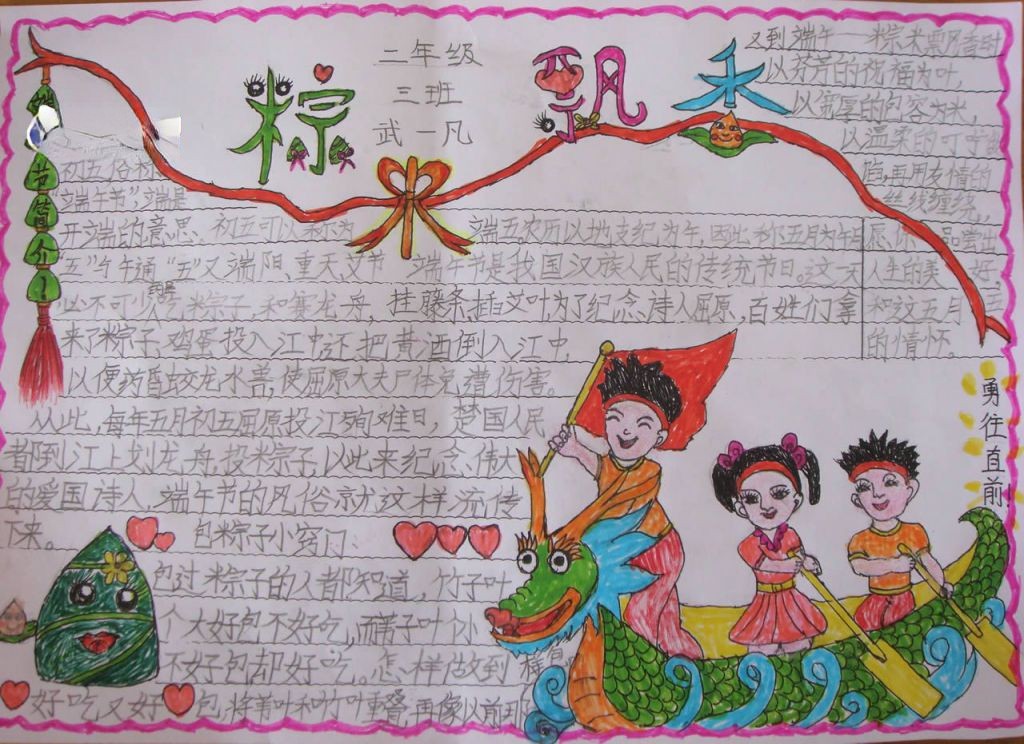 粽米飘禾
二年级
三班
武一凡
又到端午——粽米飘香时
以芬芳的祝福为叶，
以宽厚的包容为米，
以温柔的叮宁做
陷，再用友情的
丝线缠绕，
人生的美
和这五月
的情怀。
节简介
初五俗称
"端午节"，端是
开端的意思、初五可以称为
端五农历以地支纪为午，因此称五月为午
五"午通"五"又端阳、重天、艾节
端午节是我国汉族人民的传统节日。这一天
必不可少吃粽子，和赛龙舟，挂藤条，插艾叶为了纪念，诗人屈原，百姓们拿
来了粽子、鸡蛋投入江中还把黄酒倒入江中，
以便药昏蛟龙水兽，使屈原大夫尸体免遭伤害。
从此，每年五月初五屈原投江殉难日，楚国人民
都到江上划龙舟，投米宗子，以此来纪念、伟大
的爱国诗人，端午节的风俗就这样流传
下来。
包粽子小窍门：
包过粽子的人都知道，竹子叶
个大好包不好吃，而苇子叶个小
不好包却好吃。怎样做到
好吃又好包，将苇叶和竹叶重叠，再像以前那
样包
勇往直前